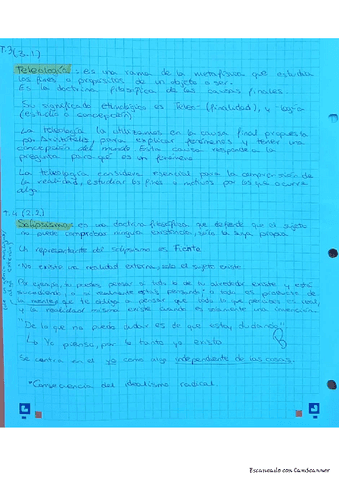 T.3 (3.1)
Teleología: es una rama de la metafísica que estudia
los fines o propósitos de un objeto o ser.
Es la doctrina filosófica de las causas finales.
Su significado etimológico es Telos (finalidad), y -logía
(estudio o concepción)
La teleología la utilizamos en la causa final propuesta
por Aristóteles, para explicar fenómenos y tener una
concepción del mundo. Esta causa responde a la
pregunta para qué es un fenómeno
La teleología considera esencial para la comprensión de
la realidad, estudiar los fines y motivos por los que ocurre
algo.
T.4 (2.2)
Solipsismo: es una doctrina filosófica que defiende que el sujeto
no puede comprobar ninguna existencia, sólo la suya propia.
Un representante del solipsismo es Fichte.
No existe una realidad externa, solo el sujeto existe.
Por ejemplo, tú puedes pensar si todo lo de tu alrededor existe y está
sucediendo, o si realmente estás pensando y todo es producto de
la mente que te obliga a pensar que todo lo que percibes es real,
y la realidad misma existe cuando es solamente una invención.
"De lo que no puedo dudar es de que estoy dudando"
Yo pienso, por lo tanto yo existo
Se centra en el yo como algo independiente de las cosas.
Consecuencia del idealismo radical.
Escaneado con CamScanner